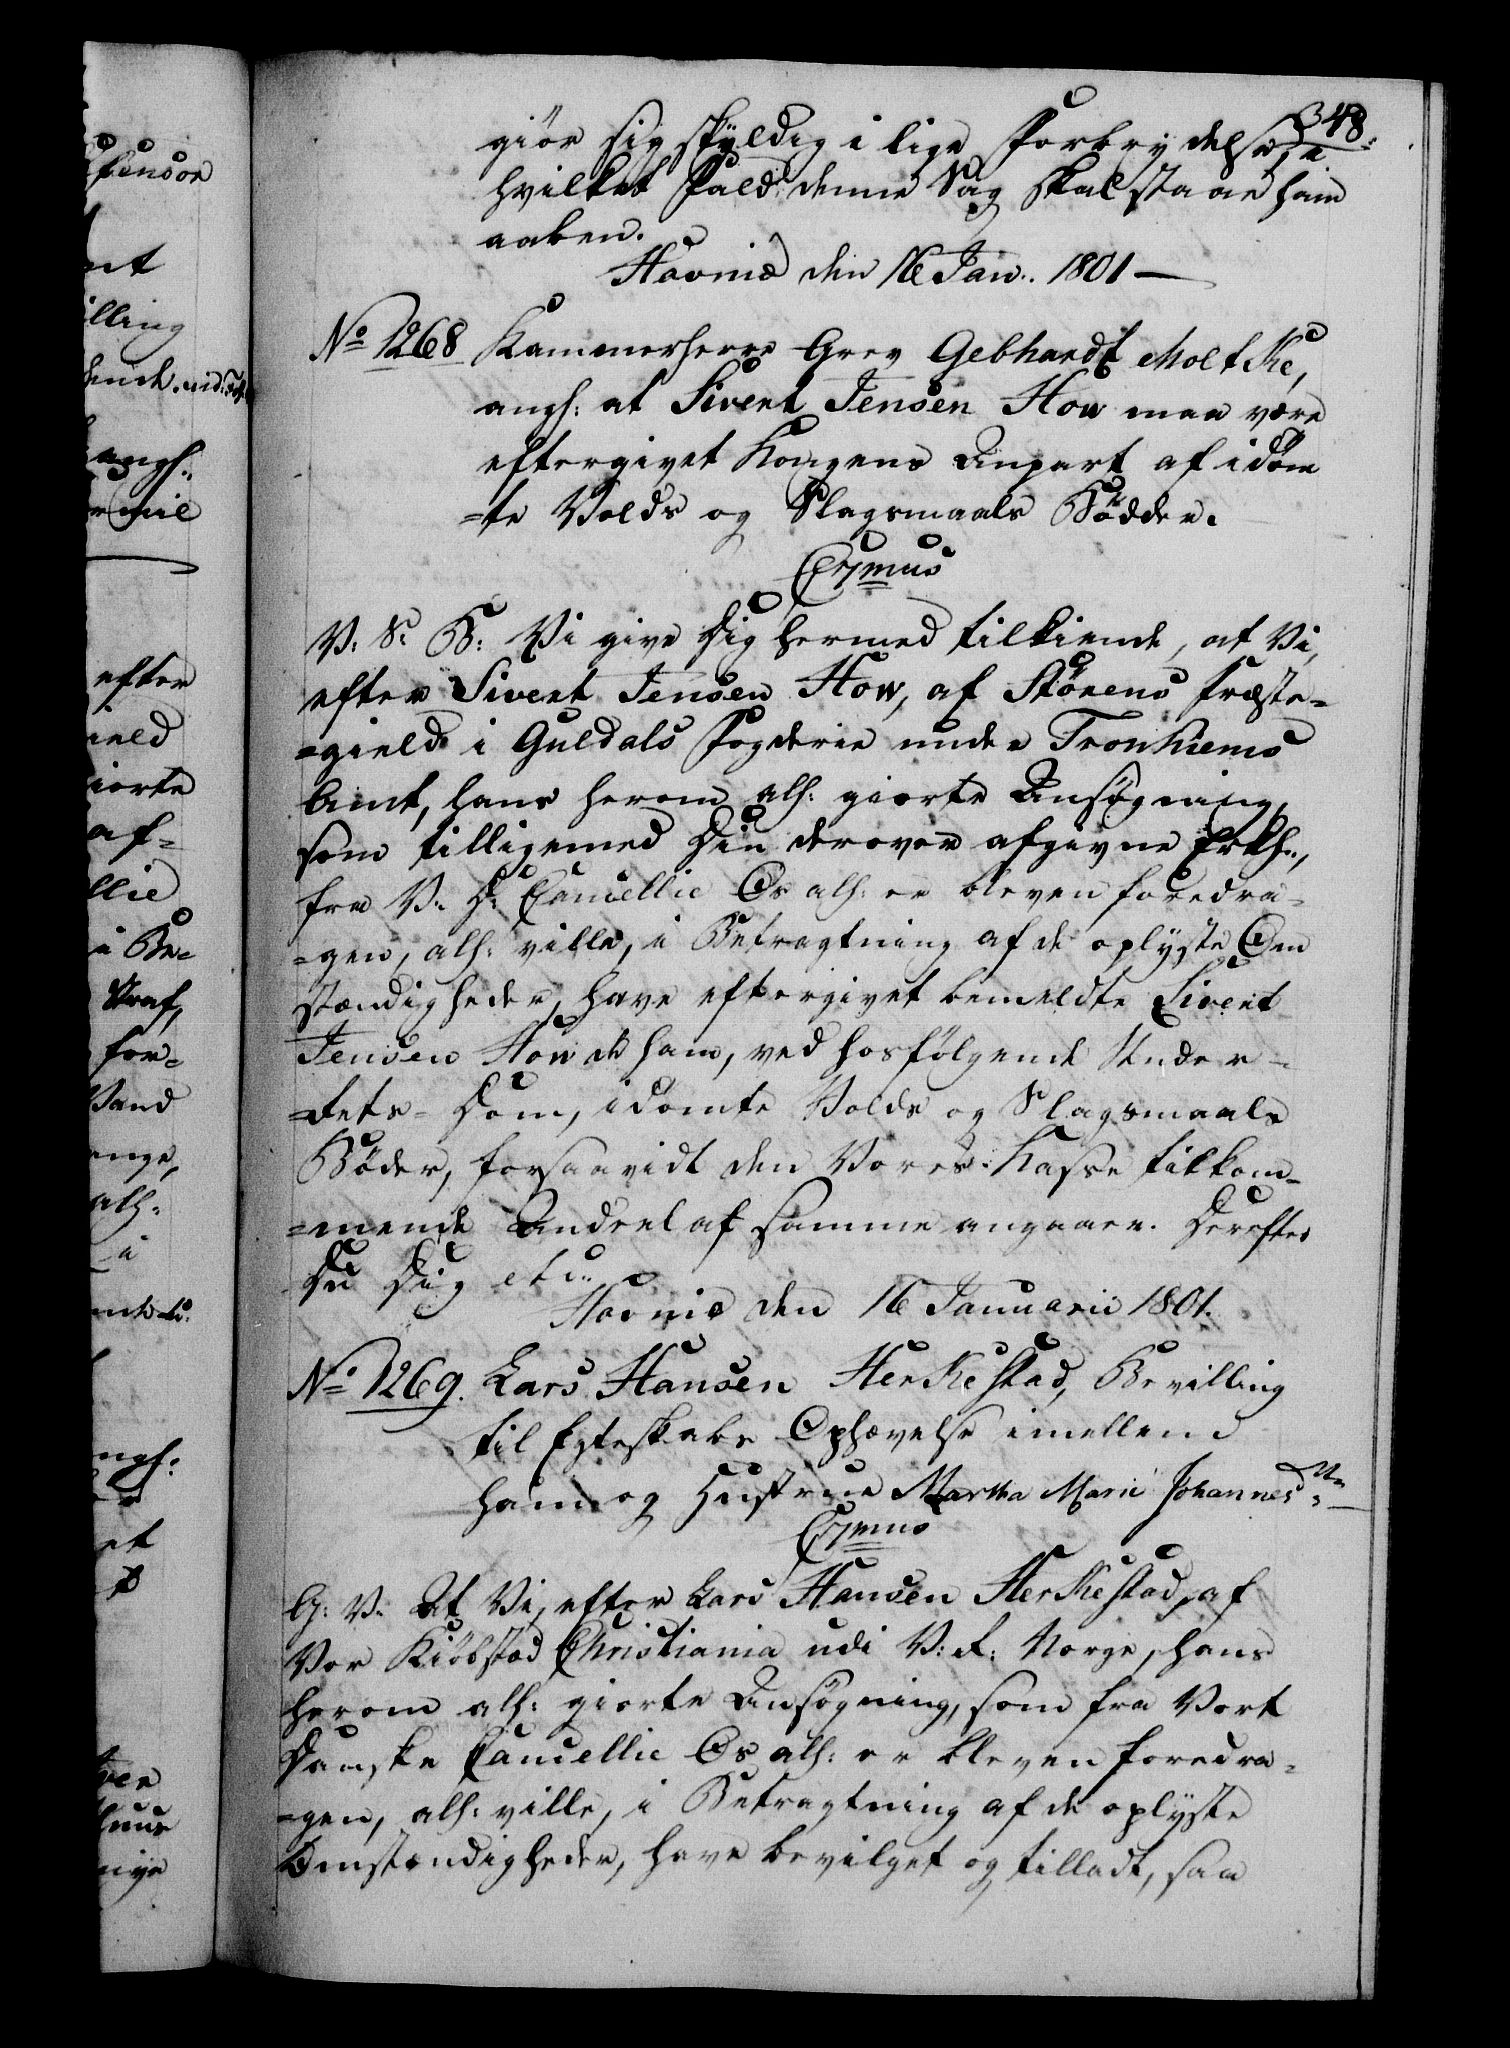 348.
giör sig skyldig i lige Forbrydelse, i
hvilket Fald denne Sag skal staae ham
aaben.
Havniæ den 16 Jan: 1801 —
No 1268 Kammerherre Grev Gebhardt Moltke,
angh: at Sivert Jensen How maa være
eftergivet Kongens Anpart af idöm
=te Volds og Slagsmaals Bödder.
C7mus
V: S: B: Vi give Dig hermed tilkiende, at Vi,
efter Sivert Jensen How, af Störens Præste=
=gield i Guldals Fogderie under Tronhiems
Amt, hans herom alh: giorte Ansögning,
som tilligemed Din derover afgivne Erkh:,
fra V: D: Cancellie Os alh: er bleven foredra=
=gen, alh: ville, i Betragtning af de oplyste Om
stændigheder, have eftergivet bemeldte Sivert
Jensen How de ham, ved hosfölgende Under=
=Rets= Dom, idömte Volds og Slagsmaals
Böder, forsaavidt den Vores Kasse tilkom=
=mende Andeel af samme angaaer. Derefter
Du Dig etc:
Havniæ den 16 Januarii 1801.
No 1269. Lars Hansen Herkestad, Bevilling
til Egteskabs Ophævelse imellem
ham og Hustrue Martha Marie Johannesdr
C7mus
G: V: At Vi, efter Lars Hansen Herkestad, af
Vor Kiöbstad Christiania udi V: R: Norge, hans
herom alh: giorte Ansögning, som fra Vort
Danske Cancellie Os alh: er bleven foredra=
=gen, alh: ville, i Betragtning af de oplyste
Omstændigheder, have bevilget og tilladt, saa